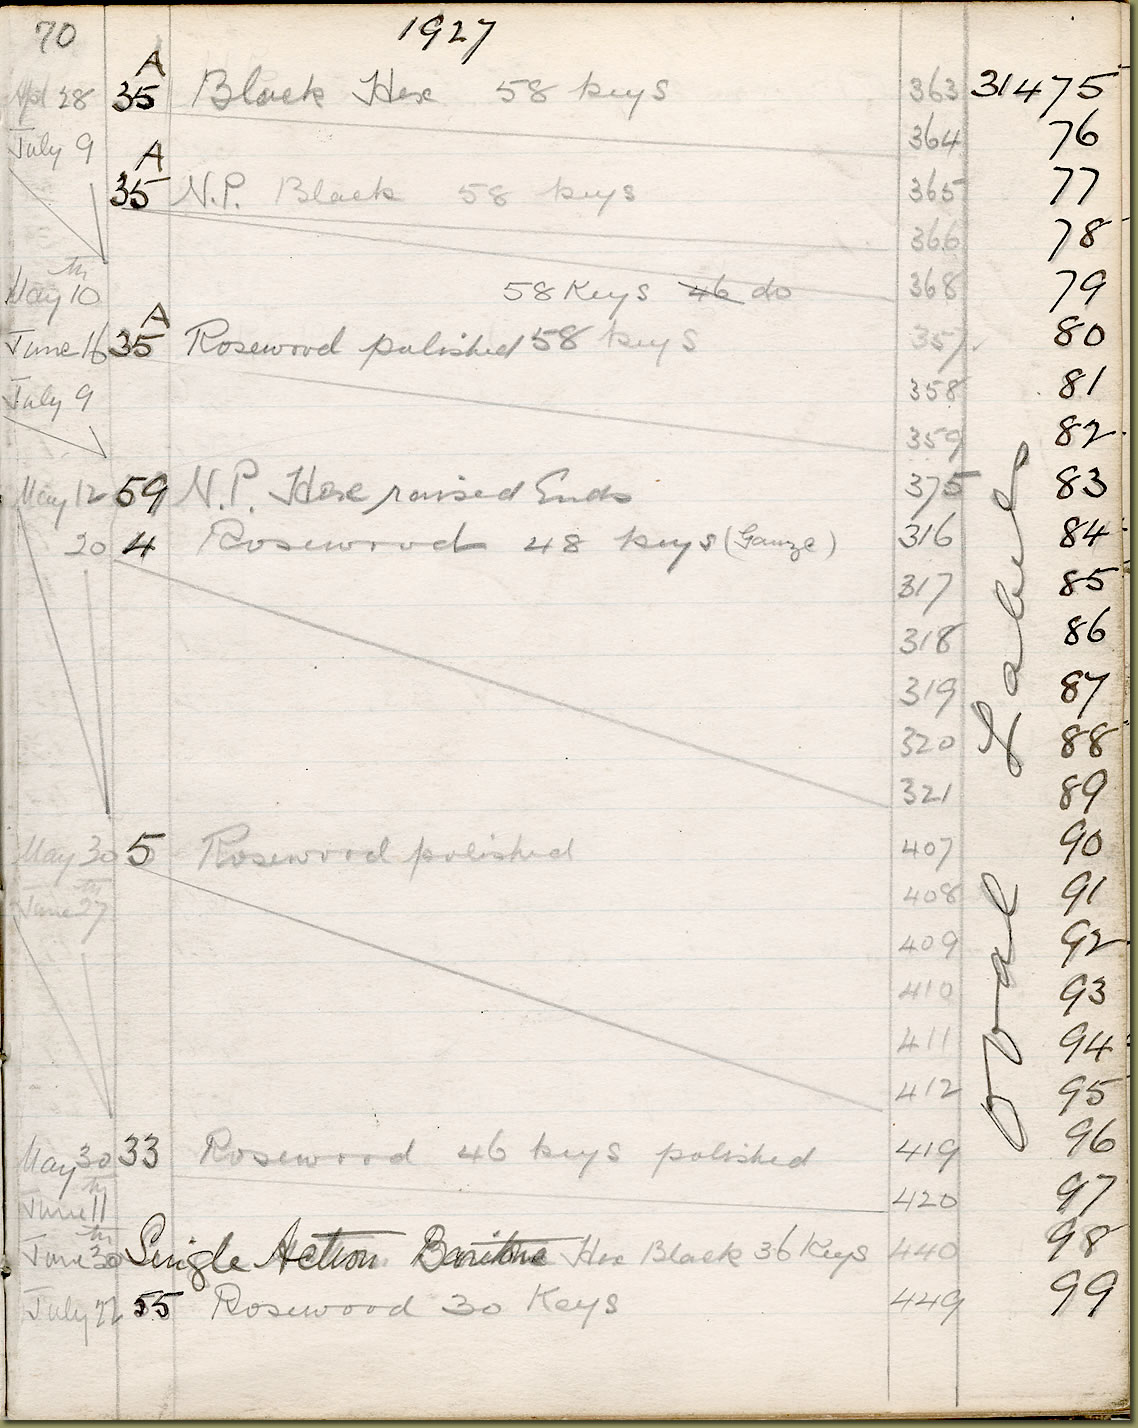 70 1927
Apl 28 35 A Black Hex 58 keys 363 31475
July 9 364 76
35 A N.P. Black 58 keys 365 77
366 78
May 10th 58 Keys 46 do 368 79
June 16 35 A Rosewood polished 58 keys 357 80
July 9 358 81
359 82
May 12 59 N.P. Hex raised Ends 375 83
20 4 Rosewood 48 keys (Gauze) 316 84
317 85
318 86
319 87
320 88
321 89
May 30 5 Rosewood polished 407 90
June 27th 408 91
409 92
410 93
411 94
412 95
May 30 33 Rosewood 46 keys polished 419 96
June 11th 420 97
June 30th Single Action Baritone Hex Black 36 Keys 440 98
July 22 55 Rosewood 30 Keys 449 99
Oval Label